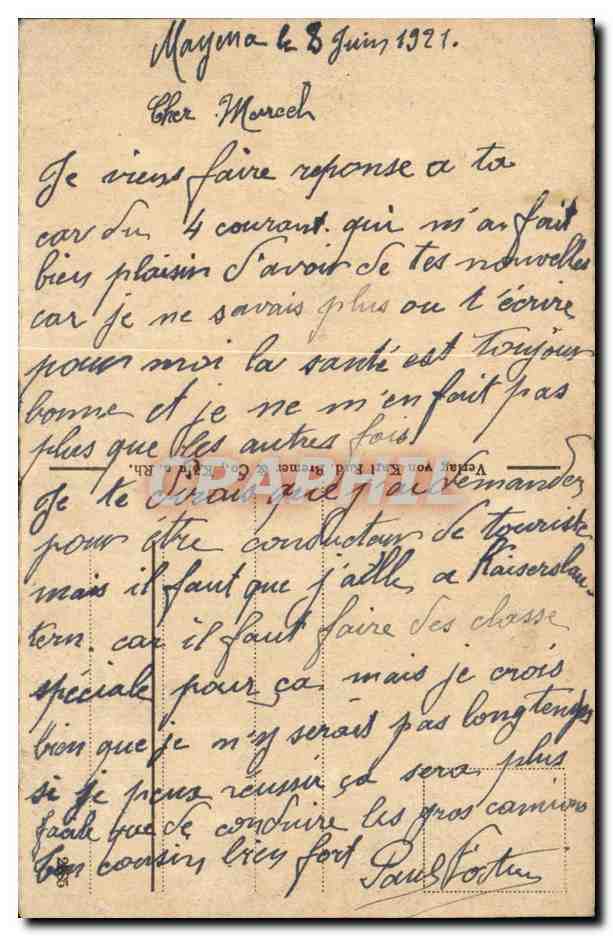 Mayena le 8 Juin 1921.
Cher Marcel
Je viens faire reponse a ta
car du 4 courant. qui m'a fait
bien plaisir d'avoir de tes nouvelles
car je ne savais plus ou t'écrire
pour moi la santé est toujour
bonne et je ne m'en fait pas
plus que les autres fois
Verlag von Karl Rud. Bremer & Co., Köln a. Rh.
CPAPHIL
Je te dirais que j'ai demander
pour être conducteur de touriste
mais il faut que j'aille a Kaiserslau-
tern. car il faut faire des classe
spéciale pour ça mais je crois
bien que je n'y serait pas longtemps
si je peux réussir ça sera plus
facile que de conduire les gros camions
Ton cousin bien fort
Paul